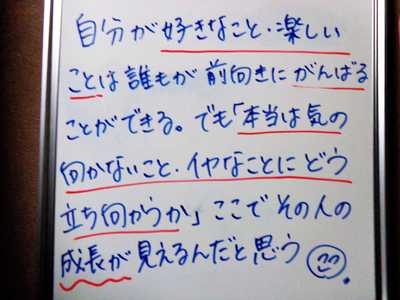 自分が好きなこと・楽しい
ことは誰もが前向きにがんばる
ことができる。でも「本当は気の
向かないこと・イヤなことにどう
立ち向がうか」ここでその人の
成長が見えるんだと思う。